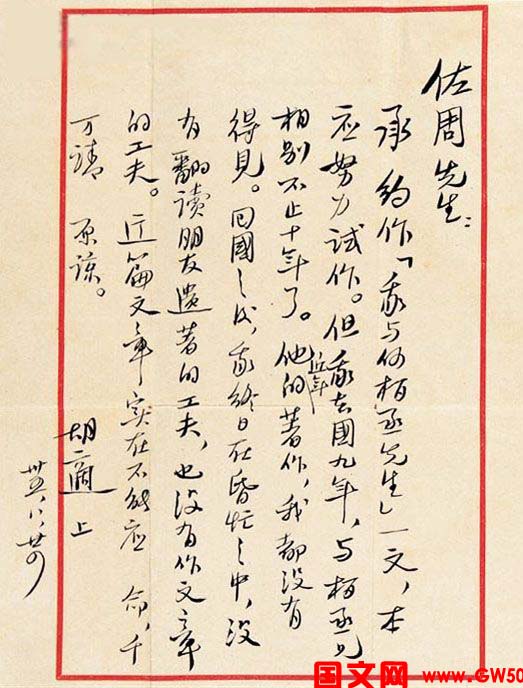 佐周先生：
承 約作「我与何柏丞先生」一文，本
应努力试作。但我去國九年，与柏丞兄
相别不止十年了。他的近年著作，我都没有
得見。回國之後，我終日在昏忙之中，没
有翻读朋友遺著的工夫，也没有作文章
的工夫。这篇文章实在不能应 命，千
万請 原諒。
胡適上
卅五，八，廿
国文网 www.GW50